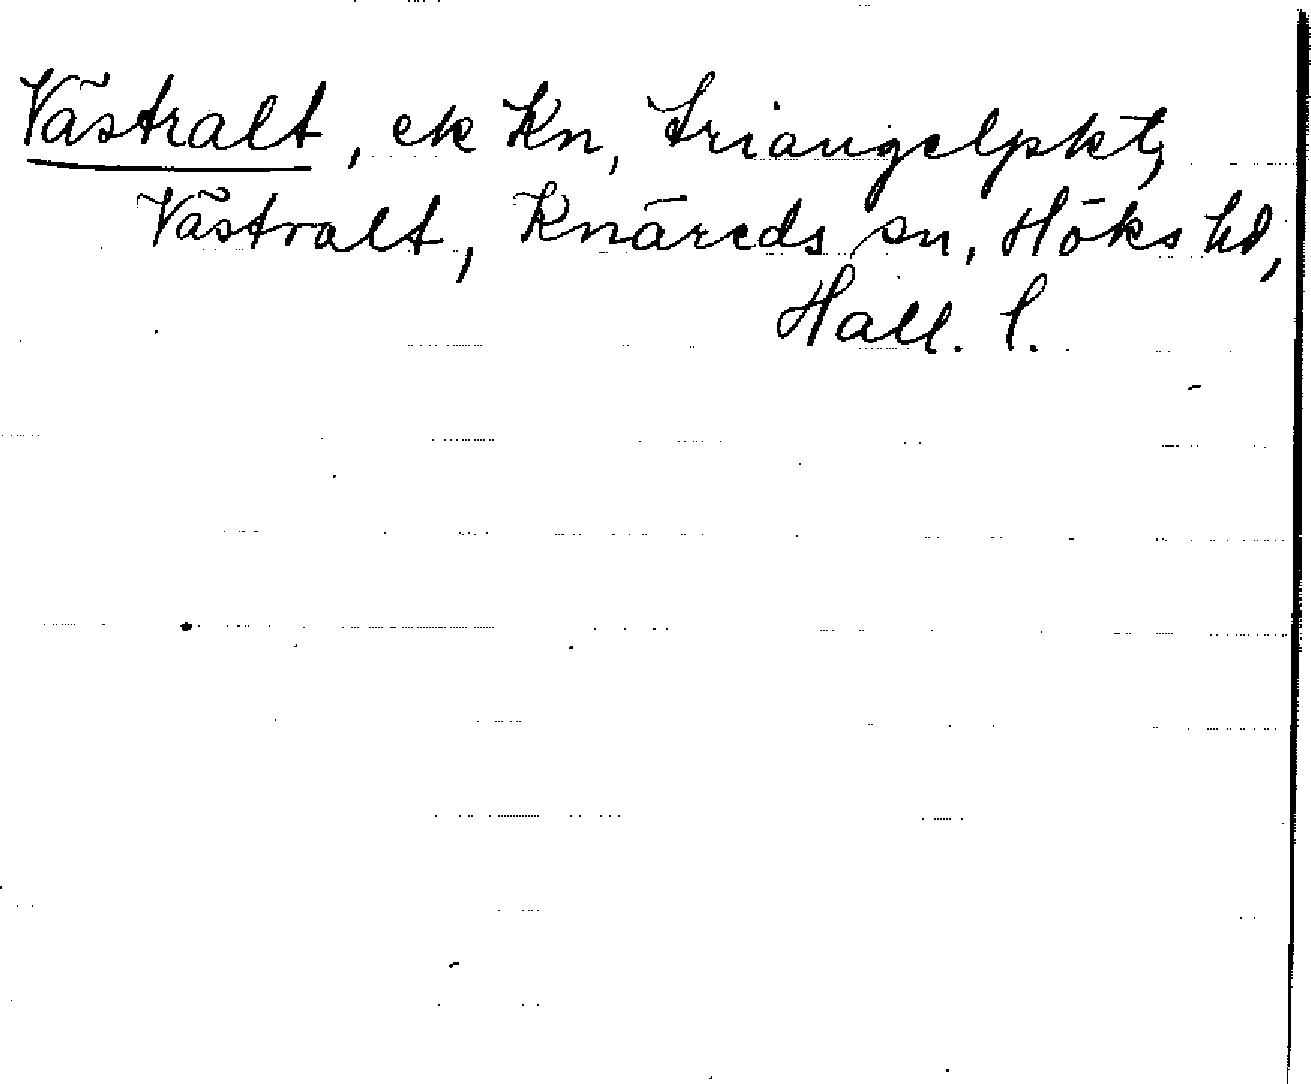 Västralt, ek Kn, Triangelpkt,
Västralt, Knäreds sn, Höks hd,
Hall. l.